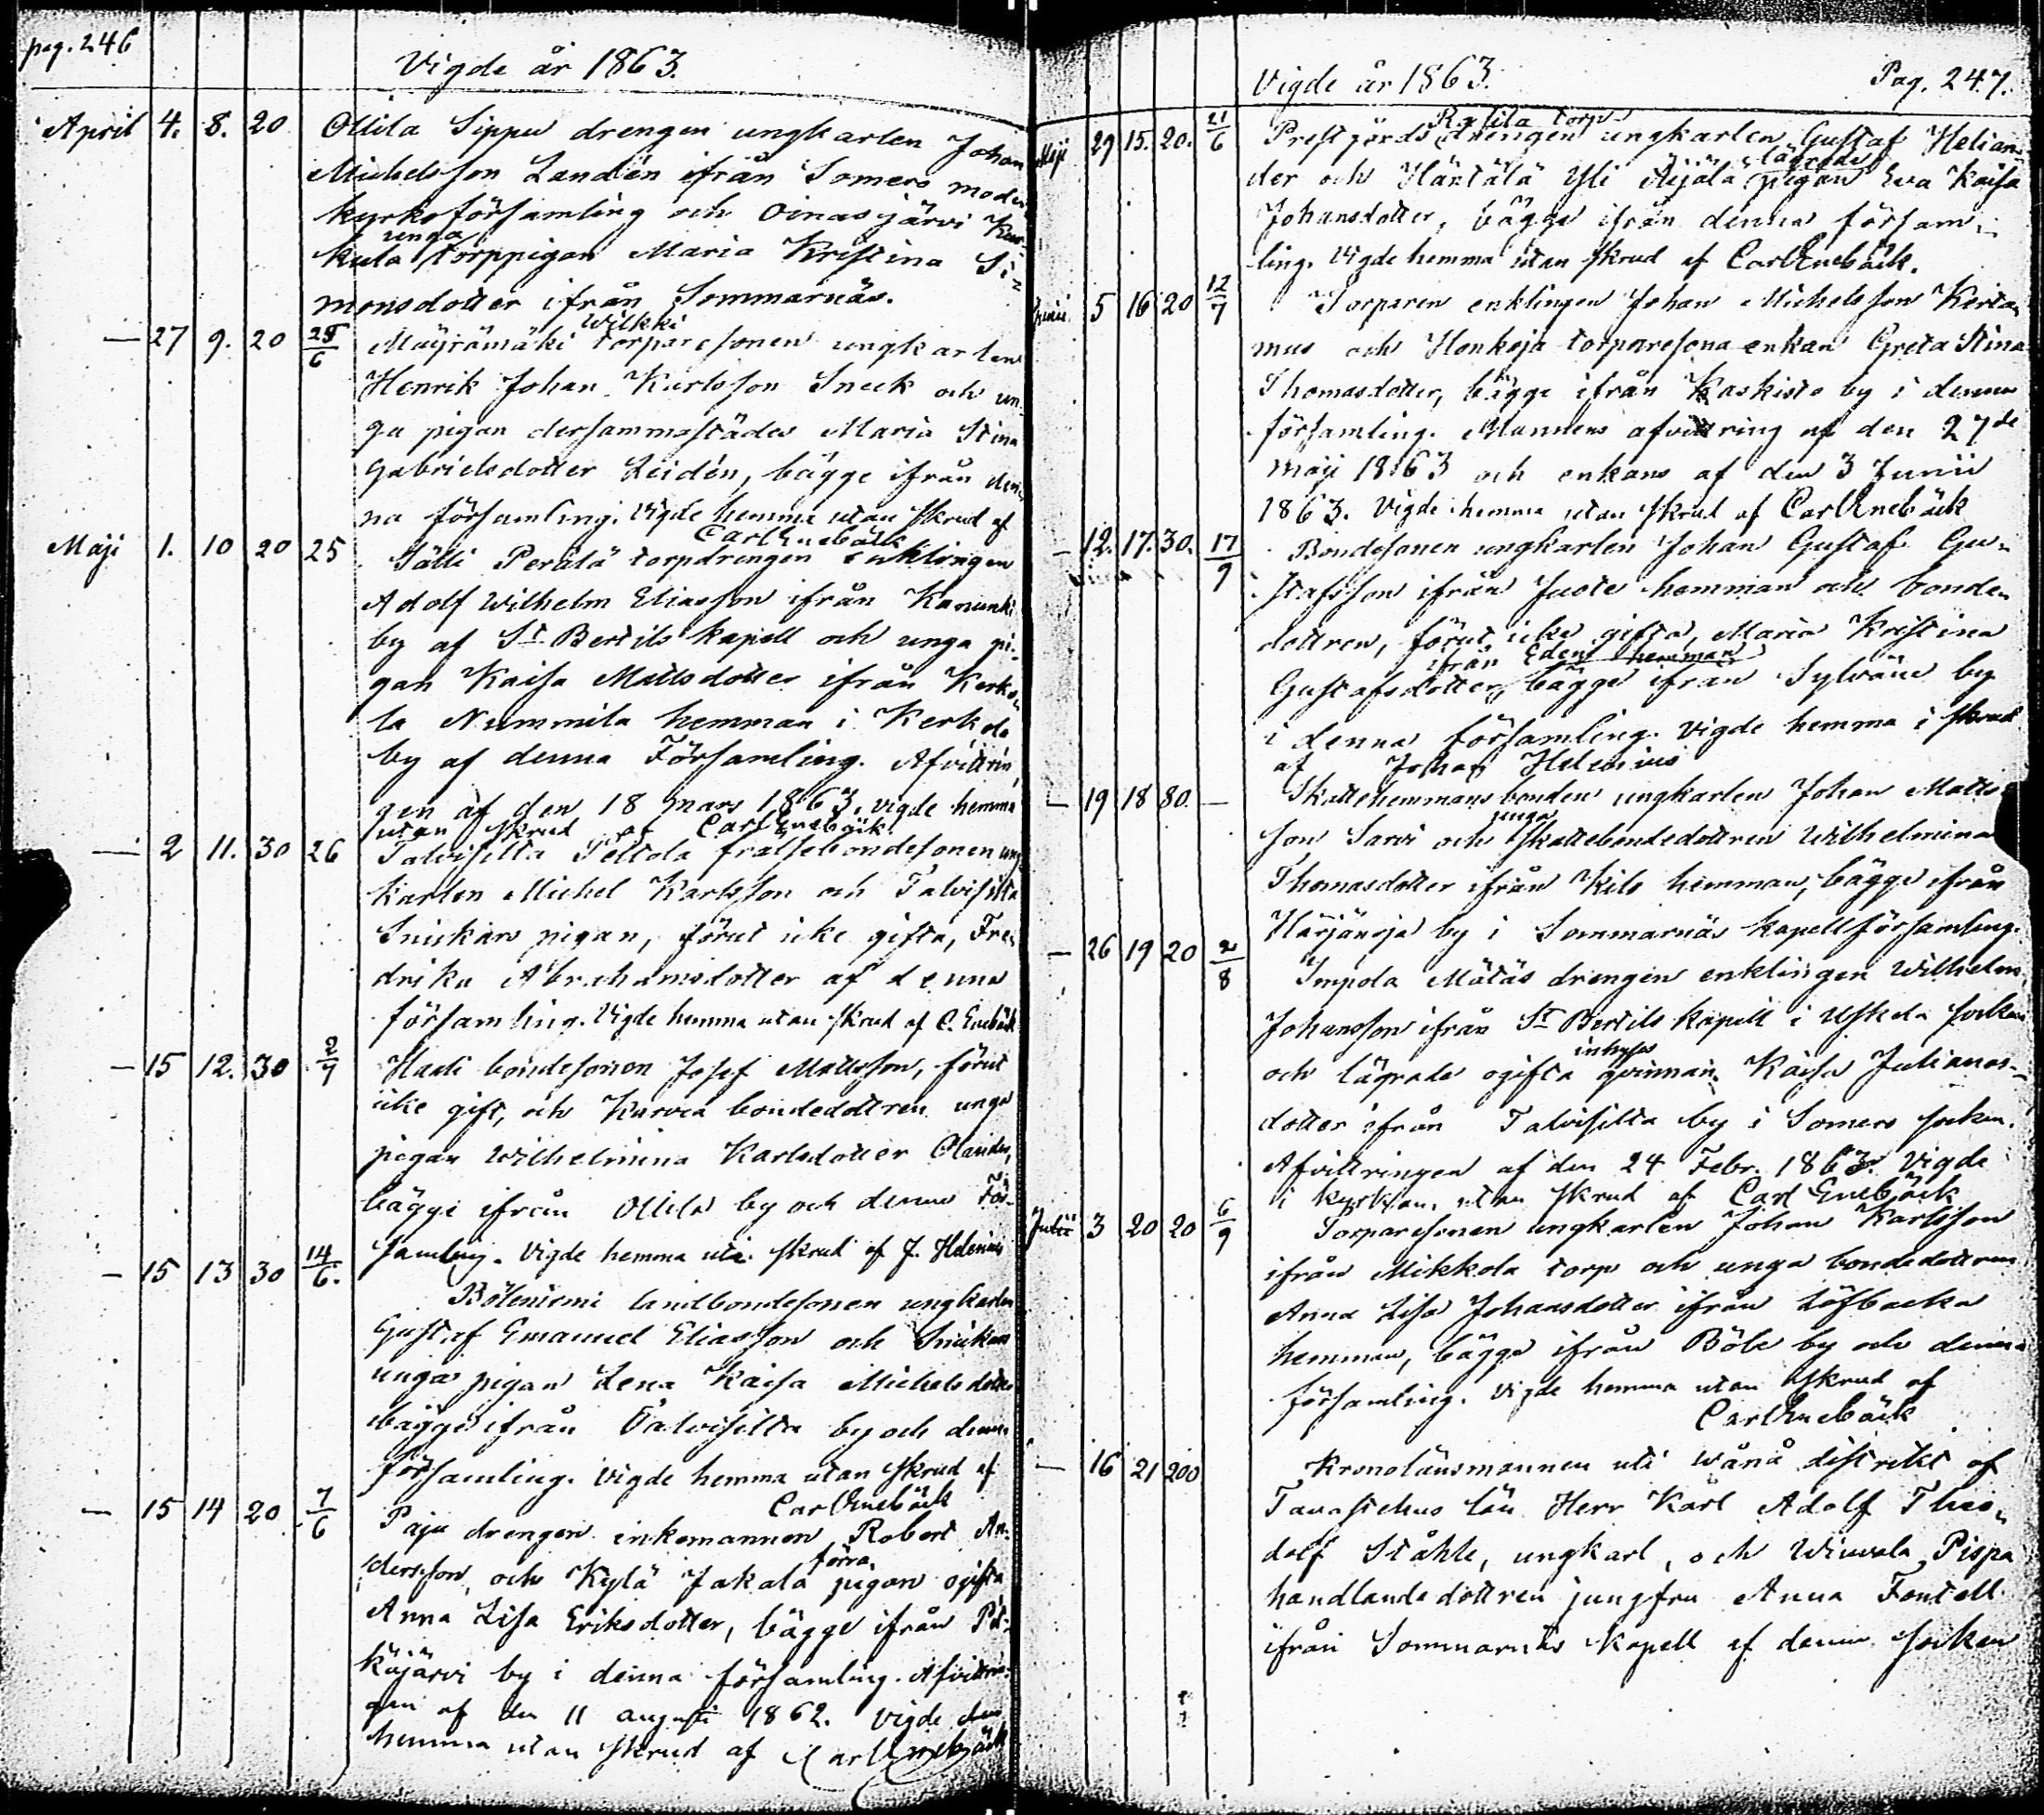 pag. 246
Vigde år 1863.
April 4. 8. 20 Ollila Sippu drengen ungkarlen Johan
Michelsson Landén ifrån Somero moder
kyrkoförsamling och Oinasjärvi
unga
kula torppigan Maria Kristina Si-
monsdotter ifrån Sommarnäs.
Wilkki
— 27 9. 20 Mäyrämäki torparesonen ungkarlen
Henrik Johan Karlsson Sneck och un-
ga pigan dersammastädes Maria Stina
Gabrielsdotter Leidén, bägge ifrån den-
na församling. Vigde hemma utan skrud af
Carl Enebäck
Maji 1. 10 20 25 Sälli Perälä torpdrengen enklingen
Adolf Wilhelm Eliasson ifrån
by af St Bertils kapell och unga pi-
gan Kaisa Mattsdotter ifrån Kerko-
la Nummila hemman i Kerkola
by af denna Församling. Afvittrin-
gen af den 18 mars 1863. vigde hemma
utan skrud af Carl Enebäck.
— 2 11. 30 26 Talvisilta Peltola frälsebondesonen ung
karlen Michel Karlsson och Talvisilta
Snickars pigan, förut icke gifta, Fre-
drika Abrahamsdotter af denna
församling. Vigde hemma utan skrud af C. Enebäck
— 15 12. 30 2/7 Härli bondesonen Josef Mattsson, förut
icke gift, och Karvia bondedottren unga
pigan Wilhelmina Karlsdotter Olander,
bägge ifrån Ollila by och denna För-
samling. Vigde hemma uti skrud af J. Helenius
— 15 13 30 14/6. Böleniemi landbondesonen ungkarlen
Gustaf Emanuel Eliasson och Snickars
unga pigan Lena Kaisa Michelsdotter
bägge ifrån Talvisilta by och denna
församling. Vigde hemma utan skrud af
Carl Enebäck
— 15 14 20 7/6 Paju drengen enkemannen Robert An-
förra
dersson, och Kylä Jakala pigan ogifta
Anna Lisa Eriksdotter, bägge ifrån Pit-
käjärvi by i denna församling. Afvittrin-
gen af den 11 augusti 1862. Vigde
hemma utan skrud af Carl Enebäck
Vigde år 1863. Pag. 247.
torp
Maji 29 15. 20. 21/6 Prestgårds drengen ungkarlen Gustaf Helian-
lägrade
der och Häntälä Yli Äijälä pigan Eva Kaisa
Johansdotter, bägge ifrån denna försam-
ling. Vigde hemma utan skrud af Carl Enebäck.
Junii 5 16 20 12/7 Torparen enklingen Johan Michelsson
mus och Honkoja torparesona enkan Greta Stina
Thomasdotter, bägge ifrån Kaskisto by i denna
församling. Mannens afvittring af den 27de
Maji 1863 och enkans af den 3 Junii
1863. Vigde hemma utan skrud af Carl Enebäck
— 12. 17. 30. 17/9 Bondesonen ungkarlen Johan Gustaf Gu-
stafsson ifrån Juote hemman och bonde-
dottren, förut icke gifta, Maria Kristina
ifrån Eden hemman
Gustafsdotter, bägge ifrån Sylvänä by
i denna församling. Vigde hemma i skrud
af Johan Helenius
— 19 18 80. — Skattehemmans bonden ungkarlen Johan Matts-
unga
son Sarvi och skattebondedottren Wilhelmina
Thomasdotter ifrån Kilo hemman, bägge ifrån
Härjänoja by i Sommarnäs kapellförsamling.
— 26 19 20 2/8 Impola Mätäs drengen enklingen Wilhelm
Johansson ifrån St Bertils kapell i Uskela socken
inhyses
och lägrade ogifta qvinnan Kaisa Julianas-
dotter ifrån Talvisilta by i Somero socken.
Afvittringen af den 24 Febr. 1863. Vigde
i kyrkan utan skrud af Carl Enebäck
Julii 3 20 20 6/9 Torparesonen ungkarlen Johan Karlsson
ifrån Mikkola torp och unga bondedottren
Anna Lisa Johansdotter ifrån Löfbacka
hemman, bägge ifrån Böle by och denna
församling. Vigde hemma utan skrud af
Carl Enebäck
— 16 21 200 Kronolänsmannen uti Wånå distrikt af
Tavastehus län Herr Karl Adolf Theo-
dolf Ståhle, ungkarl, och Wiuvala Pispa
handlande dottren jungfru Anna Fontell
ifrån Sommarnäs kapell af denna socken